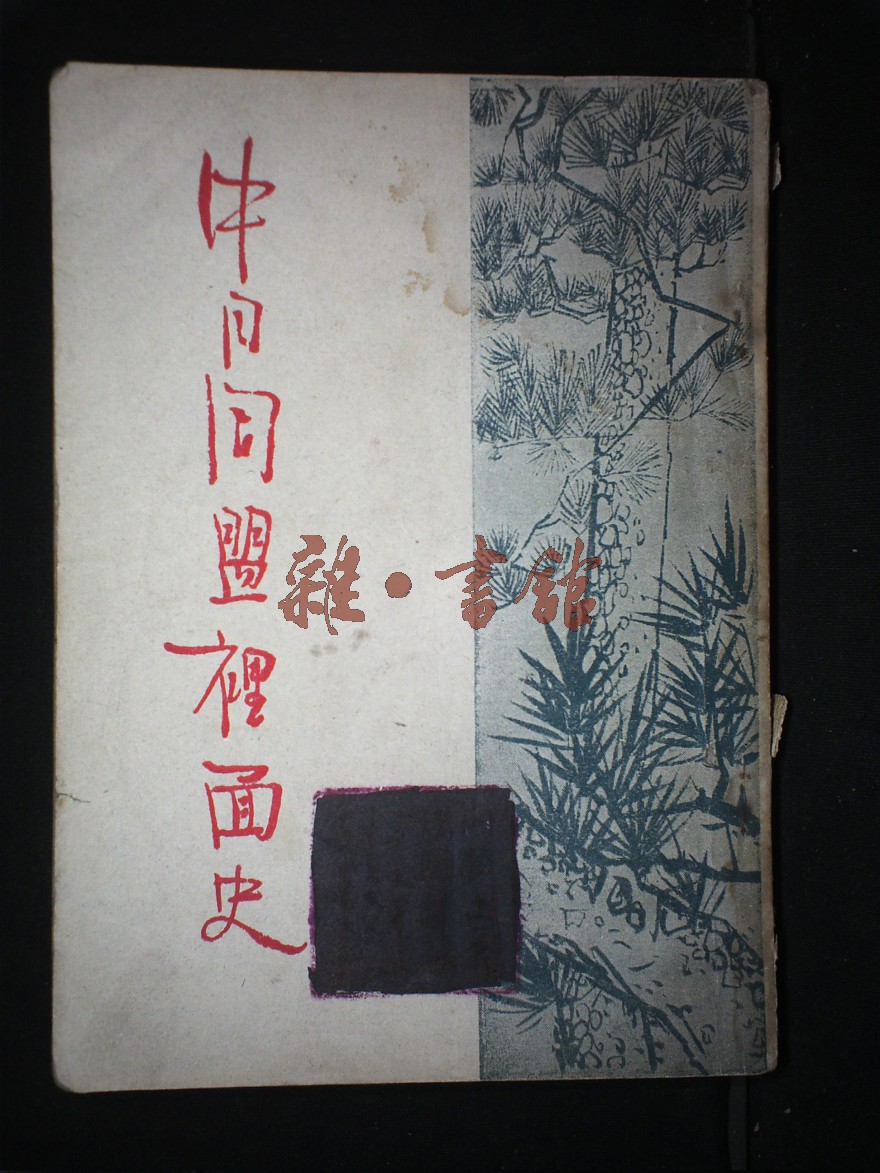 中日同盟裡面史
雜·書館